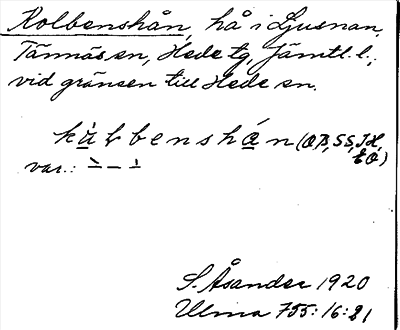 Kolbenshån, hå i Ljusnan,
Tännäs sn, Hede tg, Jämtl. l.,
vid gränsen till Hede sn.
kàlbenshán (OB, SS, JH, EO)
var.: ` – ´
S. Åsander 1920
Ulma 755:16:21